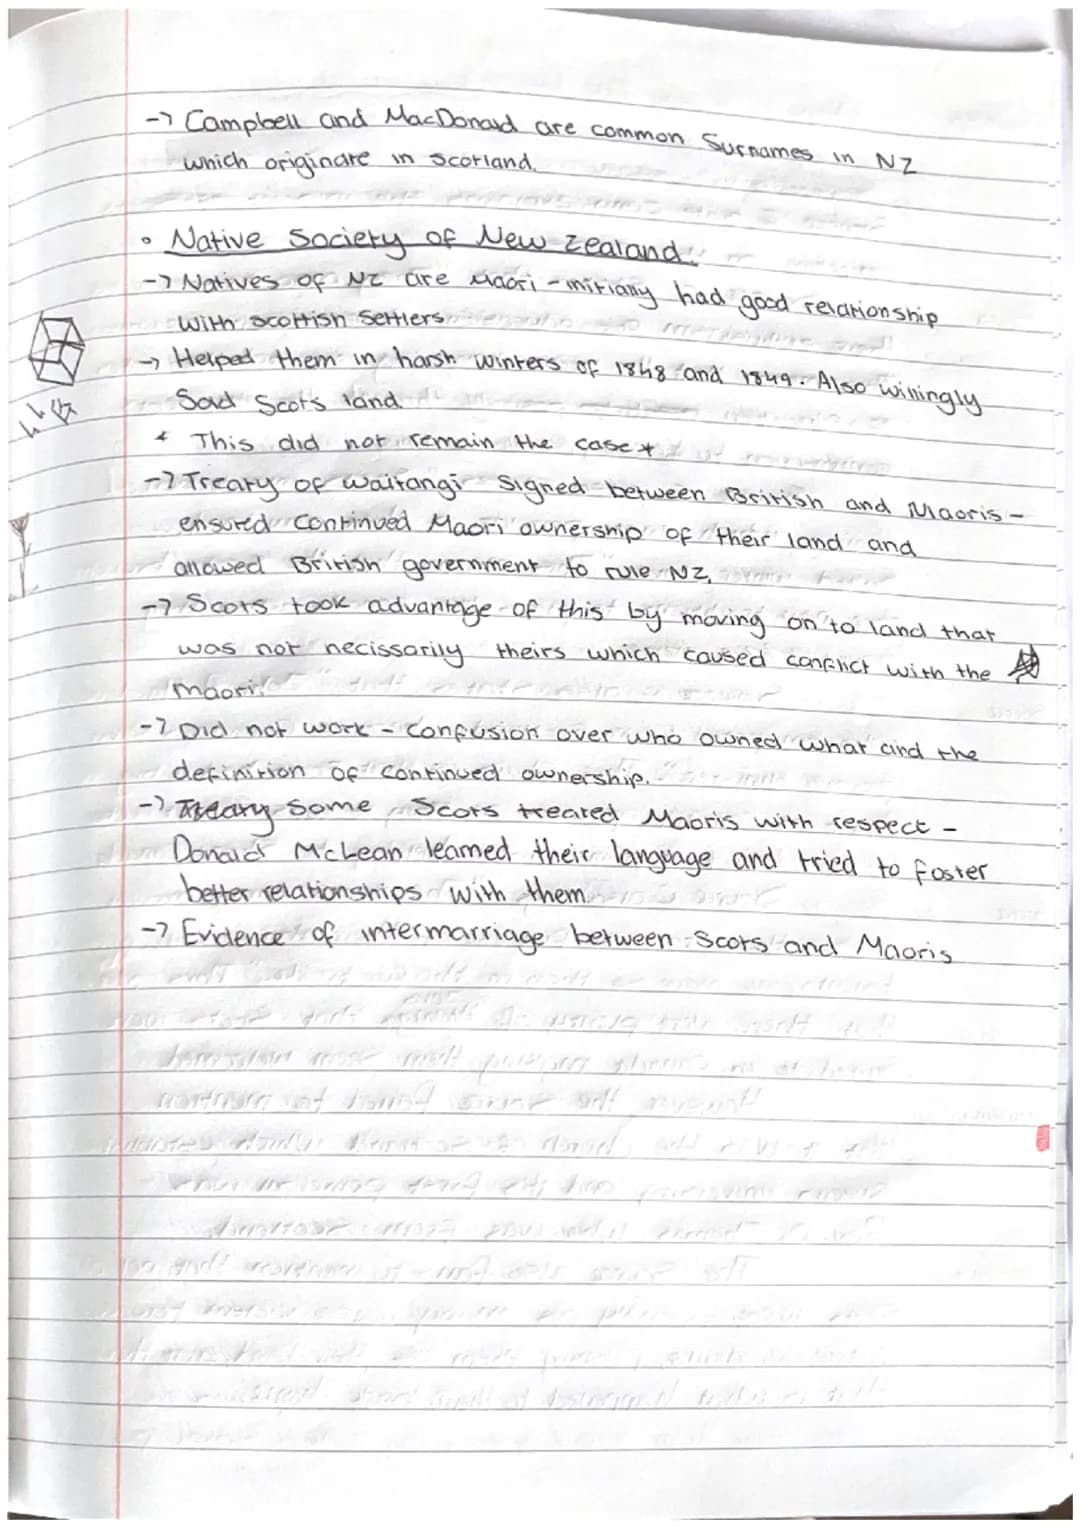 -> Campbell and MacDonald are common Surnames in NZ
which originate in Scotland.
• Native Society of New Zealand.
-> Natives of NZ are Maori - initially had good relationship
with Scottish Settlers
-> Helped them in harsh winters of 1848 and 1849. Also willingly
Sold Scots land.
* This did not remain the case *
-> Treaty of Waitangi Signed between British and Maoris -
ensured Continued Maori ownership of their land and
allowed British government to rule NZ,
-> Scots took advantage of this by moving on to land that
was not necissarily theirs which caused conflict with the
Maori.
-> Did not work - Confusion over who owned what and the
definition of continued ownership.
-> Treaty Some Scots treated Maoris with respect -
Donald McLean learned their language and tried to foster
better relationships with them.
-> Evidence of intermarriage between Scots and Maoris